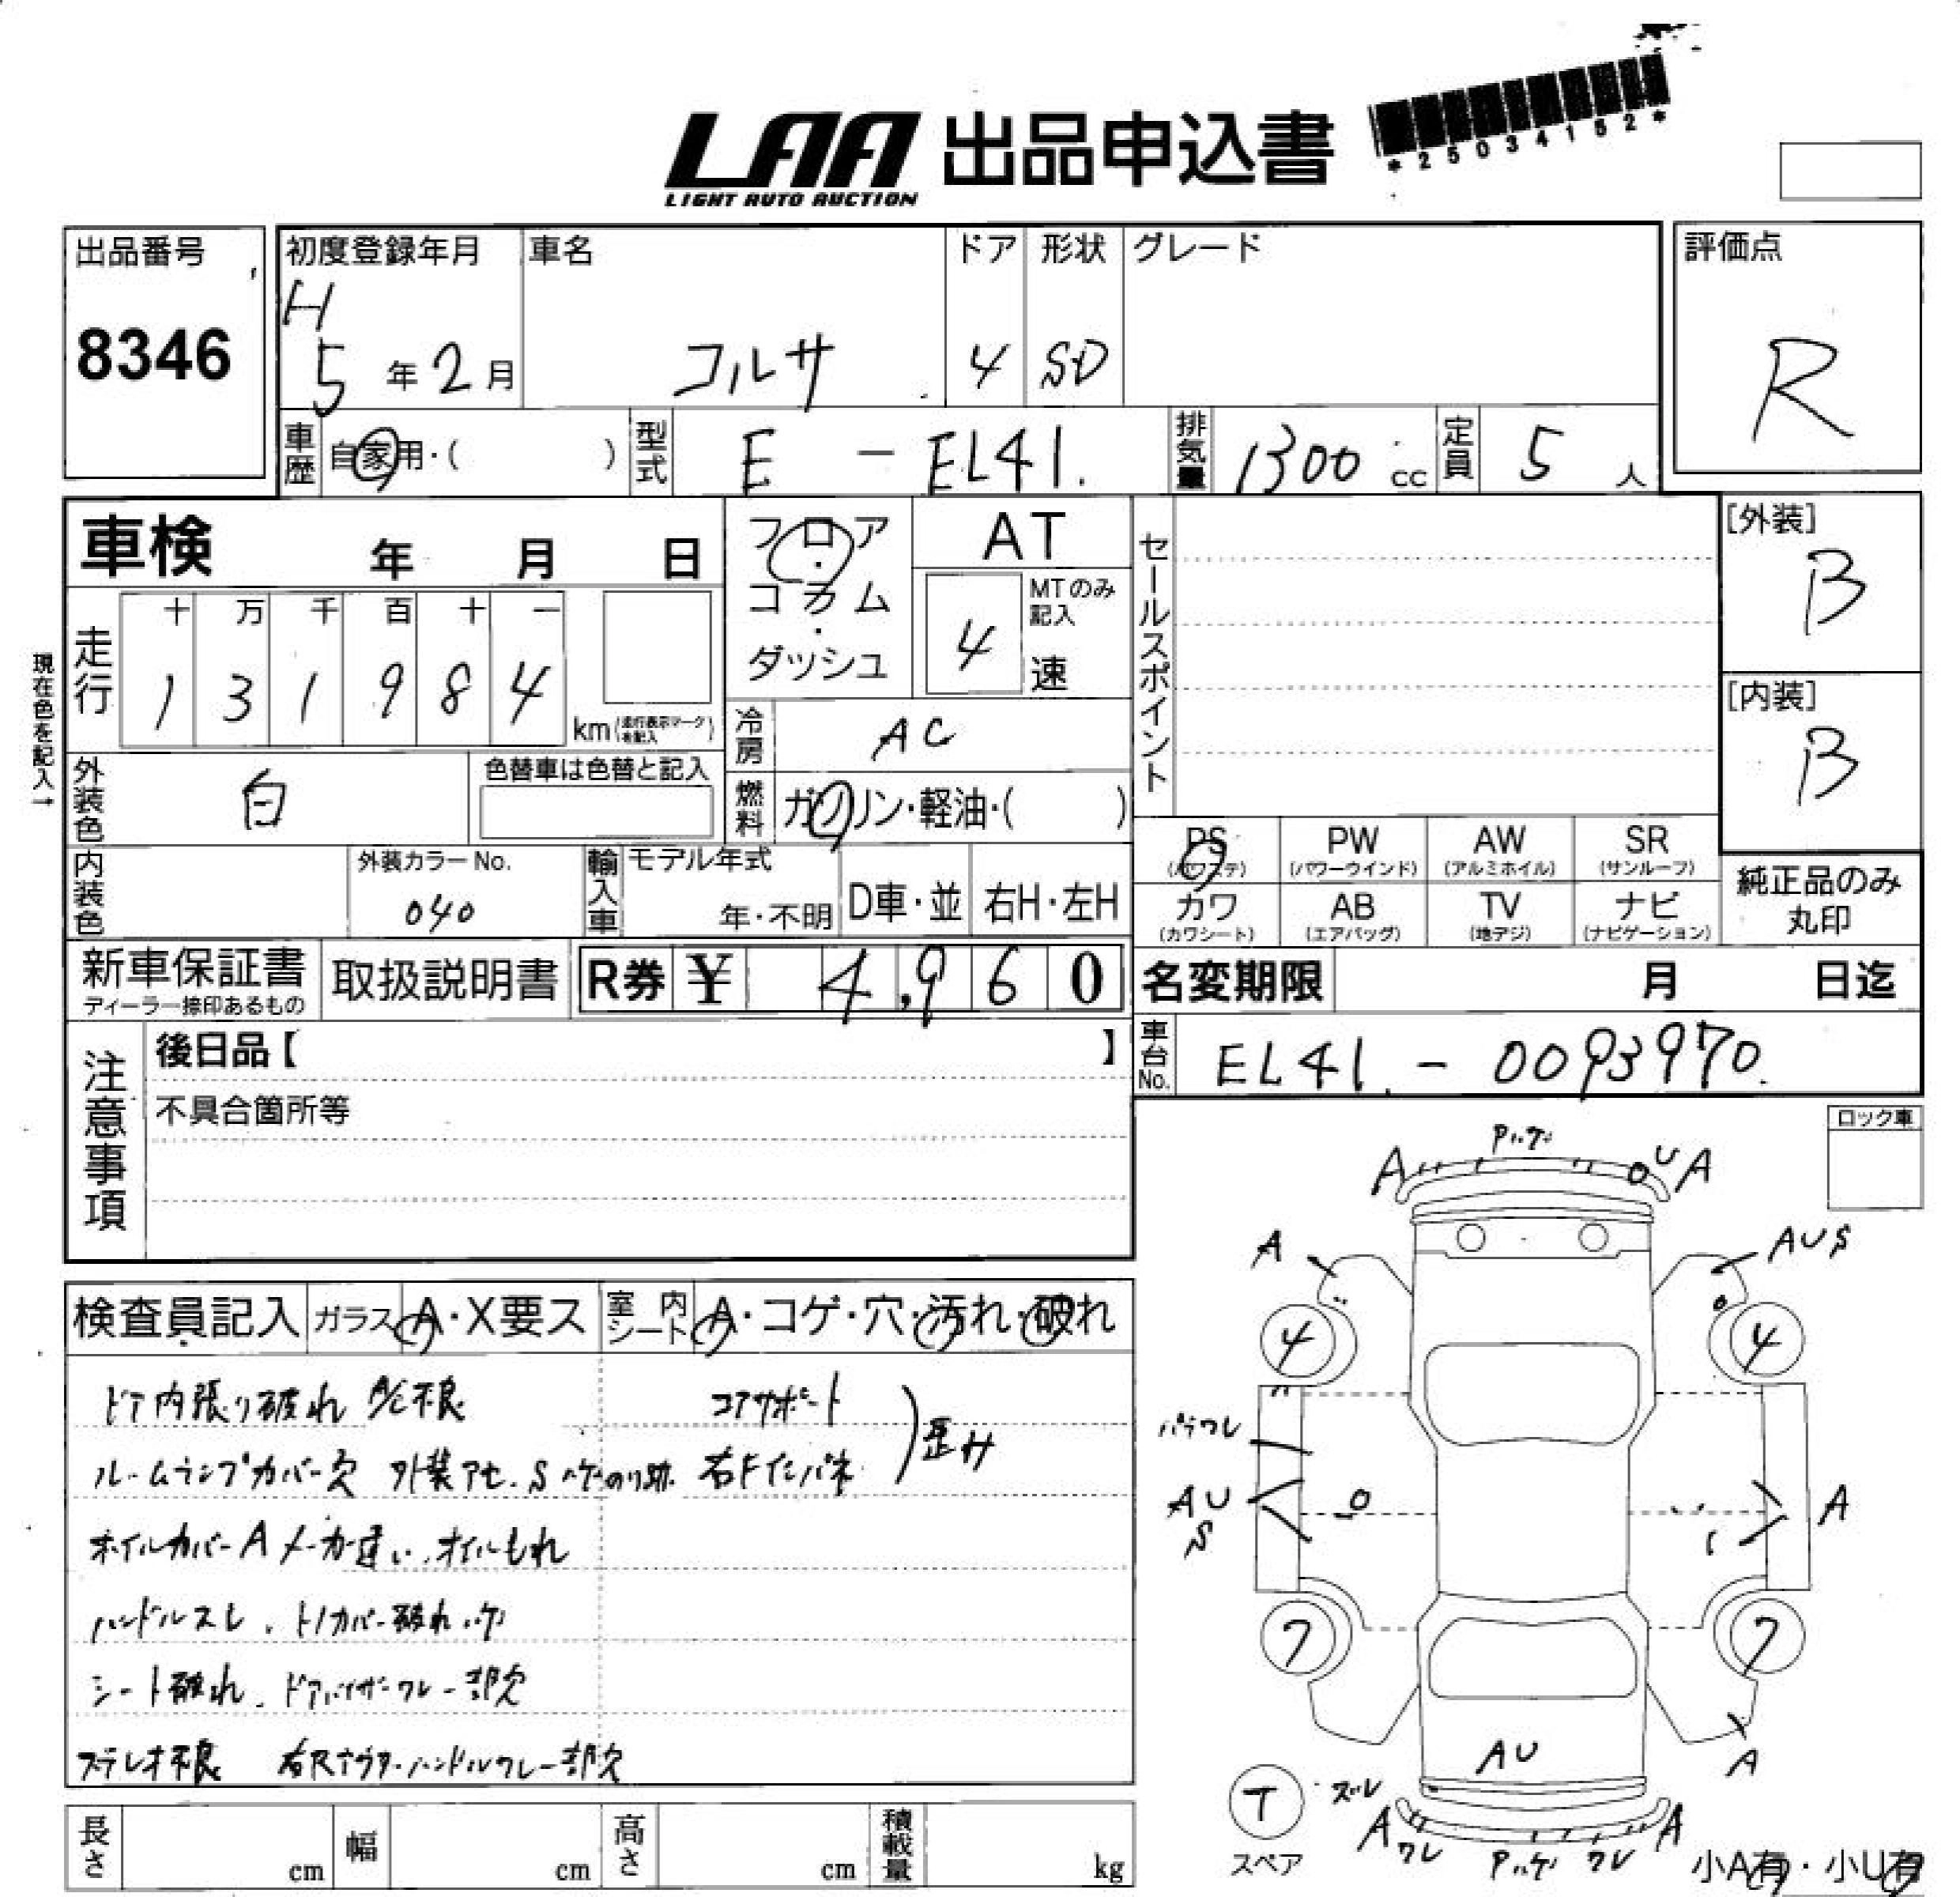 LAA 出品申込書
LIGHT AUTO AUCTION
*25034152*
出品番号
8346
初度登録年月
H
5年2月
車名
コルサ
ドア
4
形状
SD
グレード
評価点
R
車歴 自家用・( )
型式 E - EL41.
排気量 1300 cc
定員 5 人
車検 年 月 日
フロア
・
コラム
・
ダッシュ
AT
MTのみ記入
4 速
セールスポイント
[外装]
B
[内装]
B
現在色を記入→
走行
十 万 千 百 十 一
1 3 1 9 8 4
km(走行表示マークを記入)
冷房 AC
外装色 白
色替車は色替と記入
燃料 ガソリン・軽油・( )
内装色
外装カラーNo.
040
輸入車
モデル年式
年・不明
D車・並
右H・左H
PS
(パワステ)
PW
(パワーウインド)
AW
(アルミホイル)
SR
(サンルーフ)
カワ
(カワシート)
AB
(エアバッグ)
TV
(地デジ)
ナビ
(ナビゲーション)
純正品のみ
丸印
新車保証書
ディーラー捺印あるもの
取扱説明書
R券 ¥ 4,960
名変期限 月 日迄
注意事項
後日品【 】
不具合箇所等
車台No. EL41. - 0093970.
ロック車
検査員記入
ガラス A・X要ス
室内シート A・コゲ・穴・汚れ・破れ
ドア内張り破れ A/C不良
コアサポート
ルームランプカバー欠 外装アセ.S ハケ のり跡
右Fインパネ
歪み
ホイルカバーA メーカー違い.オイルもれ
ハンドルスレ.トノカバー破れ
シート破れ.ドアバイザーワレ一部欠
ステレオ不良 右Rアウターハンドルワレ一部欠
Pハゲ
A
U A
A
AUS
4
4
バラワレ
AU
S
A
7
7
AU
A
T
スペア
ズレ
A ワレ
Pハゲ ワレ
A
小A有・小U有
長さ cm
幅 cm
高さ cm
積載量 kg